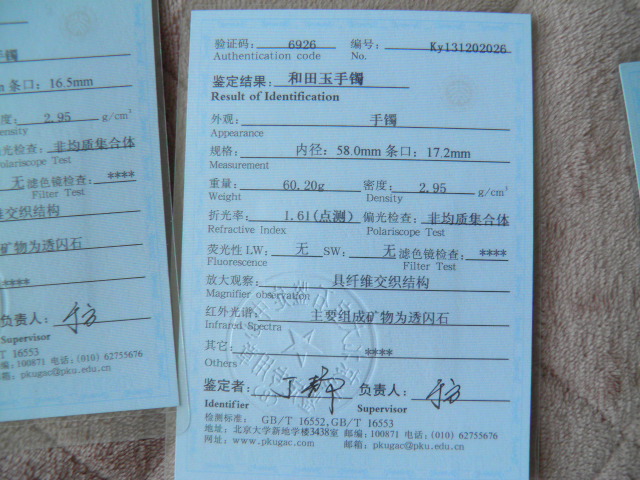 手镯
条口：16.5mm
2.95 g/cm³
非均质集合体
Polariscope Test
无 滤色镜检查：****
Filter Test
维交织结构
矿物为透闪石
****
负责人：
Supervisor
GB/T 16553
100871 电话：(010) 62755676
邮箱：pkugac@pku.edu.cn
验证码： 6926 编号： Ky131202026
Authentication code No.
鉴定结果： 和田玉手镯
Result of Identification
外观： 手镯
Appearance
规格： 内径：58.0mm 条口：17.2mm
Measurement
重量： 60.20g 密度： 2.95 g/cm³
Weight Density
折光率： 1.61(点测) 偏光检查： 非均质集合体
Refractive Index Polariscope Test
荧光性 LW： 无 SW： 无 滤色镜检查： ****
Fluorescence Filter Test
放大观察： 具纤维交织结构
Magnifier observation
红外光谱： 主要组成矿物为透闪石
Infrared Spectra
其它： ****
Others
鉴定者： 负责人：
Identifier Supervisor
检测标准： GB/T 16552,GB/T 16553
地址：北京大学新地学楼3438室 邮编：100871 电话：(010) 62755676
网址：www.pkugac.com 邮箱：pkugac@pku.edu.cn